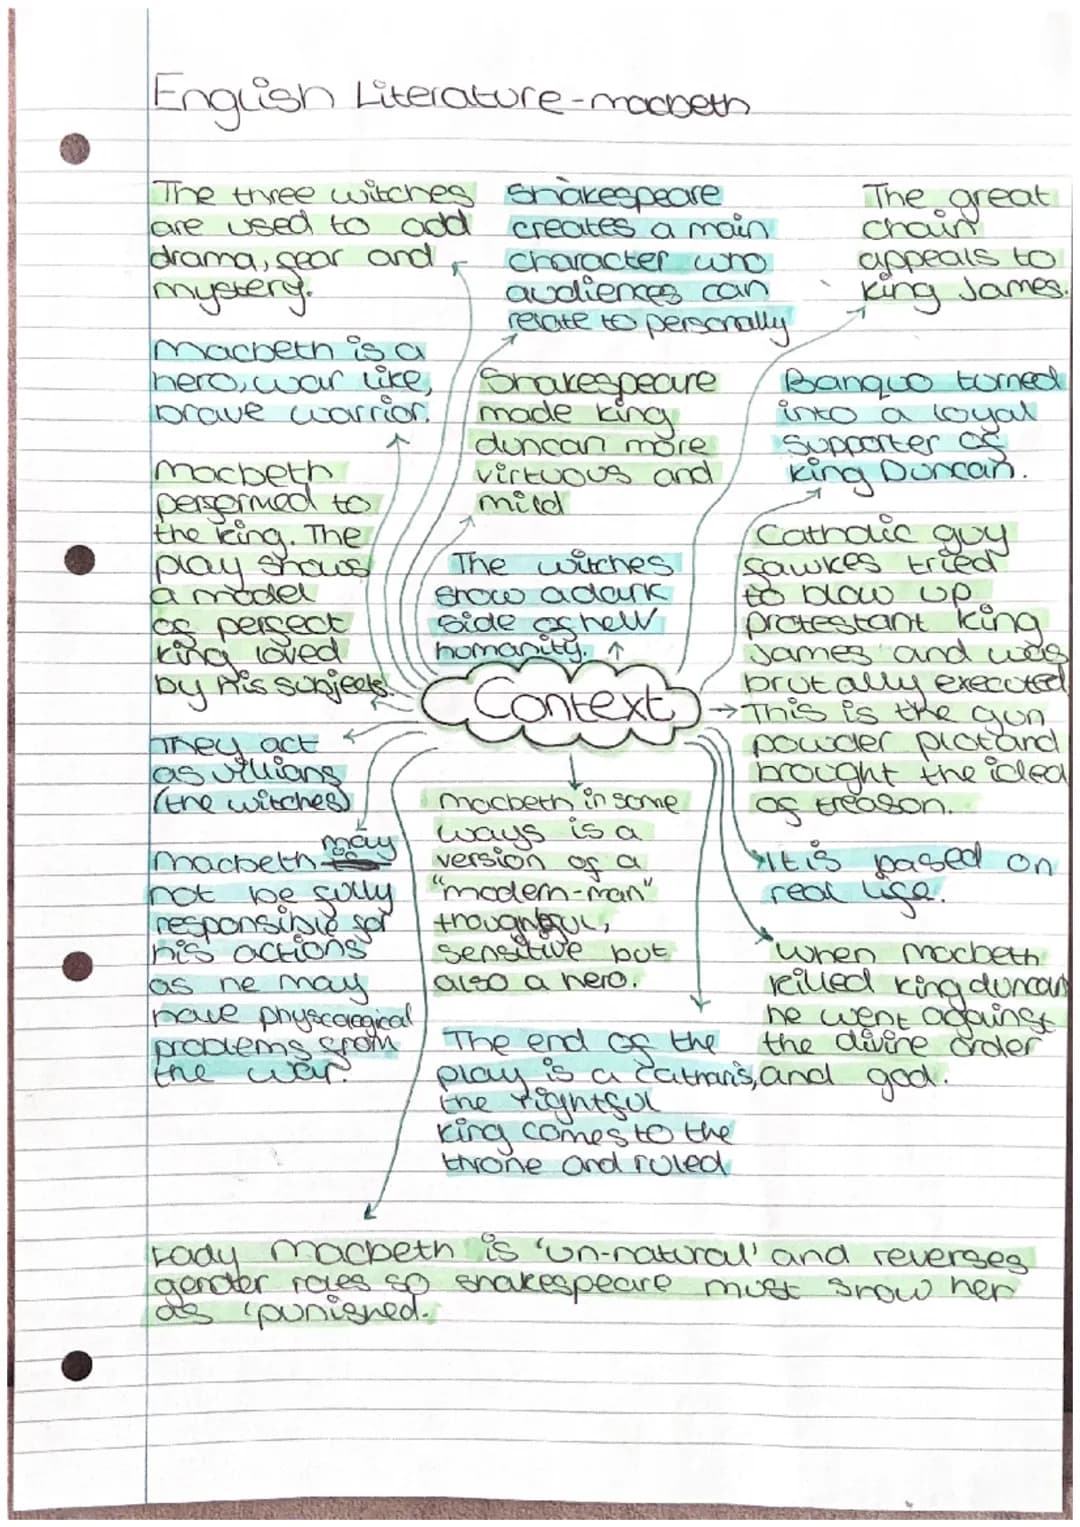 English Literature - macbeth
The three witches
are used to add
drama, fear and
mystery.
Shakespeare
creates a main
character who
audiences can
relate to personally
The great
chain
appeals to
king James.
Macbeth is a
hero, war like,
brave warrior.
Shakespeare
made king
duncan more
virtuous and
mild
Banquo turned
into a loyal
supporter of
king Duncan.
Macbeth
performed to
the king. The
play shows
a model
of perfect
king loved
by his subjects.
The witches
show a dark
side of hell
humanity.
Catholic guy
fawkes tried
to blow up
protestant king
James and was
brutally executed
This is the gun
powder plot and
brought the idea
of treason.
Context
They act
as villians
(the witches)
Macbeth may
not be fully
responsible for
his actions
as he may
have physcological
problems from
the war.
Macbeth in some
ways is a
version of a
"modern-man"
thoughtful,
sensitive but
also a hero.
It is based on
real life.
When Macbeth
killed king duncan
he went against
the divine order
and god.
The end of the
play is a catharis,
the rightful
king comes to the
throne and ruled
Lady Macbeth is 'un-natural' and reverses
gender roles so shakespeare must show her
as 'punished.